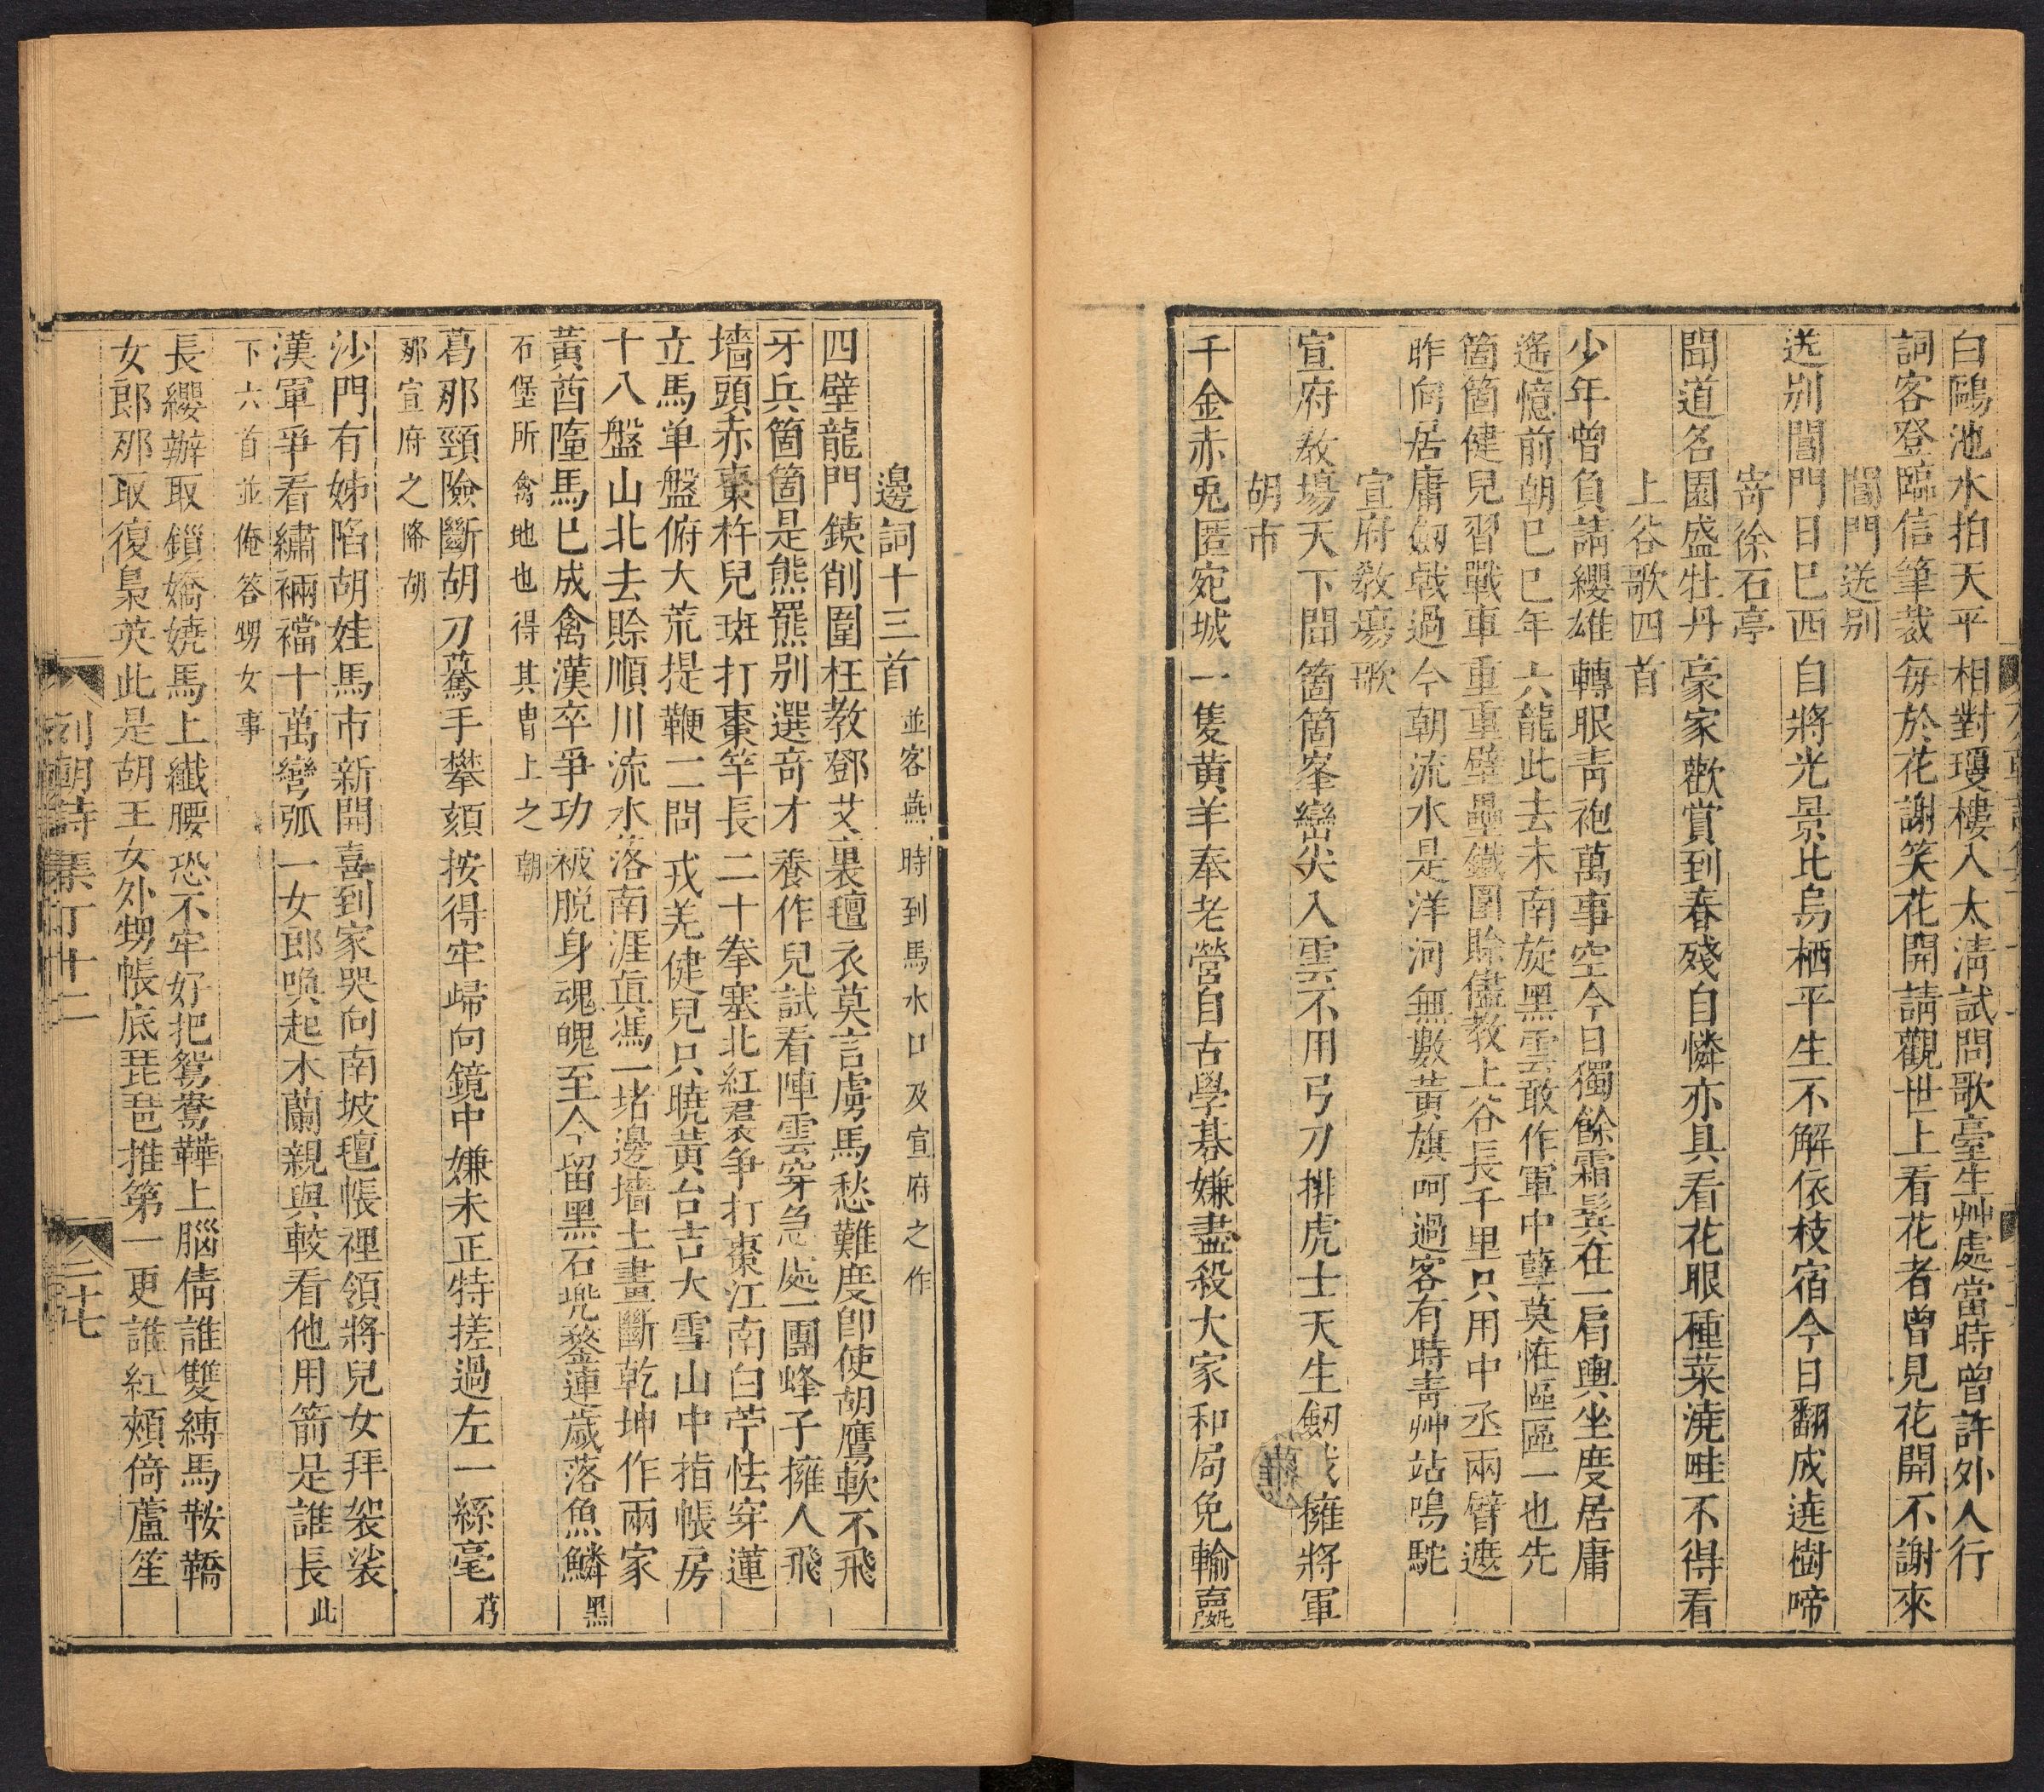 白鷗池水拍天平相對瓊樓入太淸試問歌臺生艸處當時曾許外人行
詞客登臨信筆裁每於花謝笑花開請觀世上看花者曾見花開不謝來
閶門送别
送别閶門日已西自將光景比烏栖平生不解依枝宿今日翻成遶樹啼
寄徐石亭
聞道名園盛牡丹豪家歡賞到春殘自憐亦具看花眼種菜澆畦不得看
上谷歌四首
少年曾負請纓雄轉眼靑袍萬事空今日獨餘霜鬂在一肩輿坐度居庸
遙憶前朝已巳年六龍此去未南旋黑雲敢作軍中孽莫恠區區一也先
箇箇健兒習戰車重重壁壘鐵圍賒儘教上谷長千里只用中丞兩臂遮
昨向居庸劒戟過今朝流水是洋河無數黃旗呵過客有時靑艸站鳴駝
宣府敎塲歌
宣府敎塲天下聞箇箇峯巒尖入雲不用弓刀排虎士天生劒戟擁將軍
胡市
千金赤兎匿宛城一隻黄羊奉老營自古學碁嫌盡殺大家和局免輸嬴
邊詞十三首並客燕時到馬水口及宣府之作
四壁龍門鐵削圍枉教鄧艾裹氊衣莫言虜馬愁難度卽使胡鷹軟不飛
牙兵箇箇是熊羆别選奇才養作兒試看陣雲穿急處一團蜂子擁人飛
墻頭赤棗杵兒斑打棗竿長二十拳塞北紅裠争打棗江南白苧怯穿蓮
立馬单盤俯大荒提鞭一一問戎羌健兒只曉黃台吉大雪山中指帳房
十八盤山北去賒順川流水落南涯眞馮一堵邊墻土畫斷乾坤作兩家
黃酋墮馬已成禽漢卒爭功被脱身魂魄至今留黑石兠鍪連歲落魚鱗黑
石堡所禽地也得其冑上之朝
葛那頸險斷胡刀驀手攀頦按得牢歸向鏡中嫌未正特搓過左一絲毫葛
那宣府之降胡
沙門有姊陷胡娃馬市新開喜到家哭向南坡氊帳裡領將兒女拜袈裟
漢軍爭看繡裲襠十萬彎弧一女郎喚起木蘭親與較看他用箭是誰長此
下六首並俺答甥女事
長纓辦取鎻嬌嬈馬上纖腰恐不牢好把鴛鴦鞾上腦倩誰雙縛馬鞍鞽
女郎那取復梟英此是胡王女外甥帳底琵琶推第一更誰紅頰倚蘆笙
列朝詩集丁十二
二十七